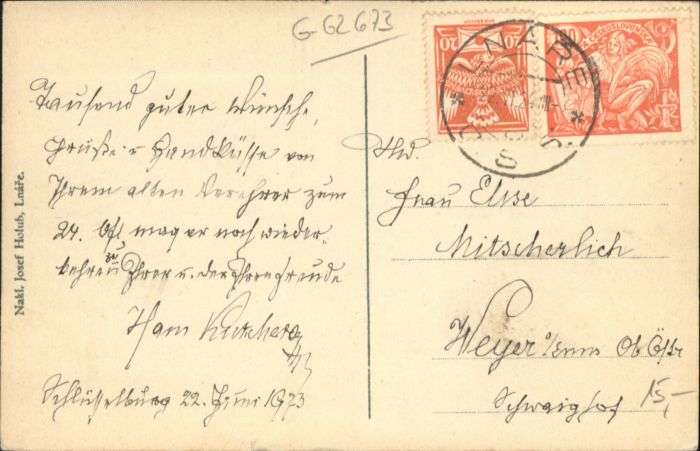 G 62 673
Tausend guten Wünsche,
Grüße u Handküsse von
Ihrem alten Verehrer zum
24. Oft mag er noch wieder-
zu
Ihrer u. der Ihren Freude
Hans
Schlüsselburg 22. Juni 1923
Nakl. Josef Holub, Lnáře.
LNÁŘE
Frau Elise
Mitscherlich
Weyer a/Enns Ob Östr
Schwaighof
15,-